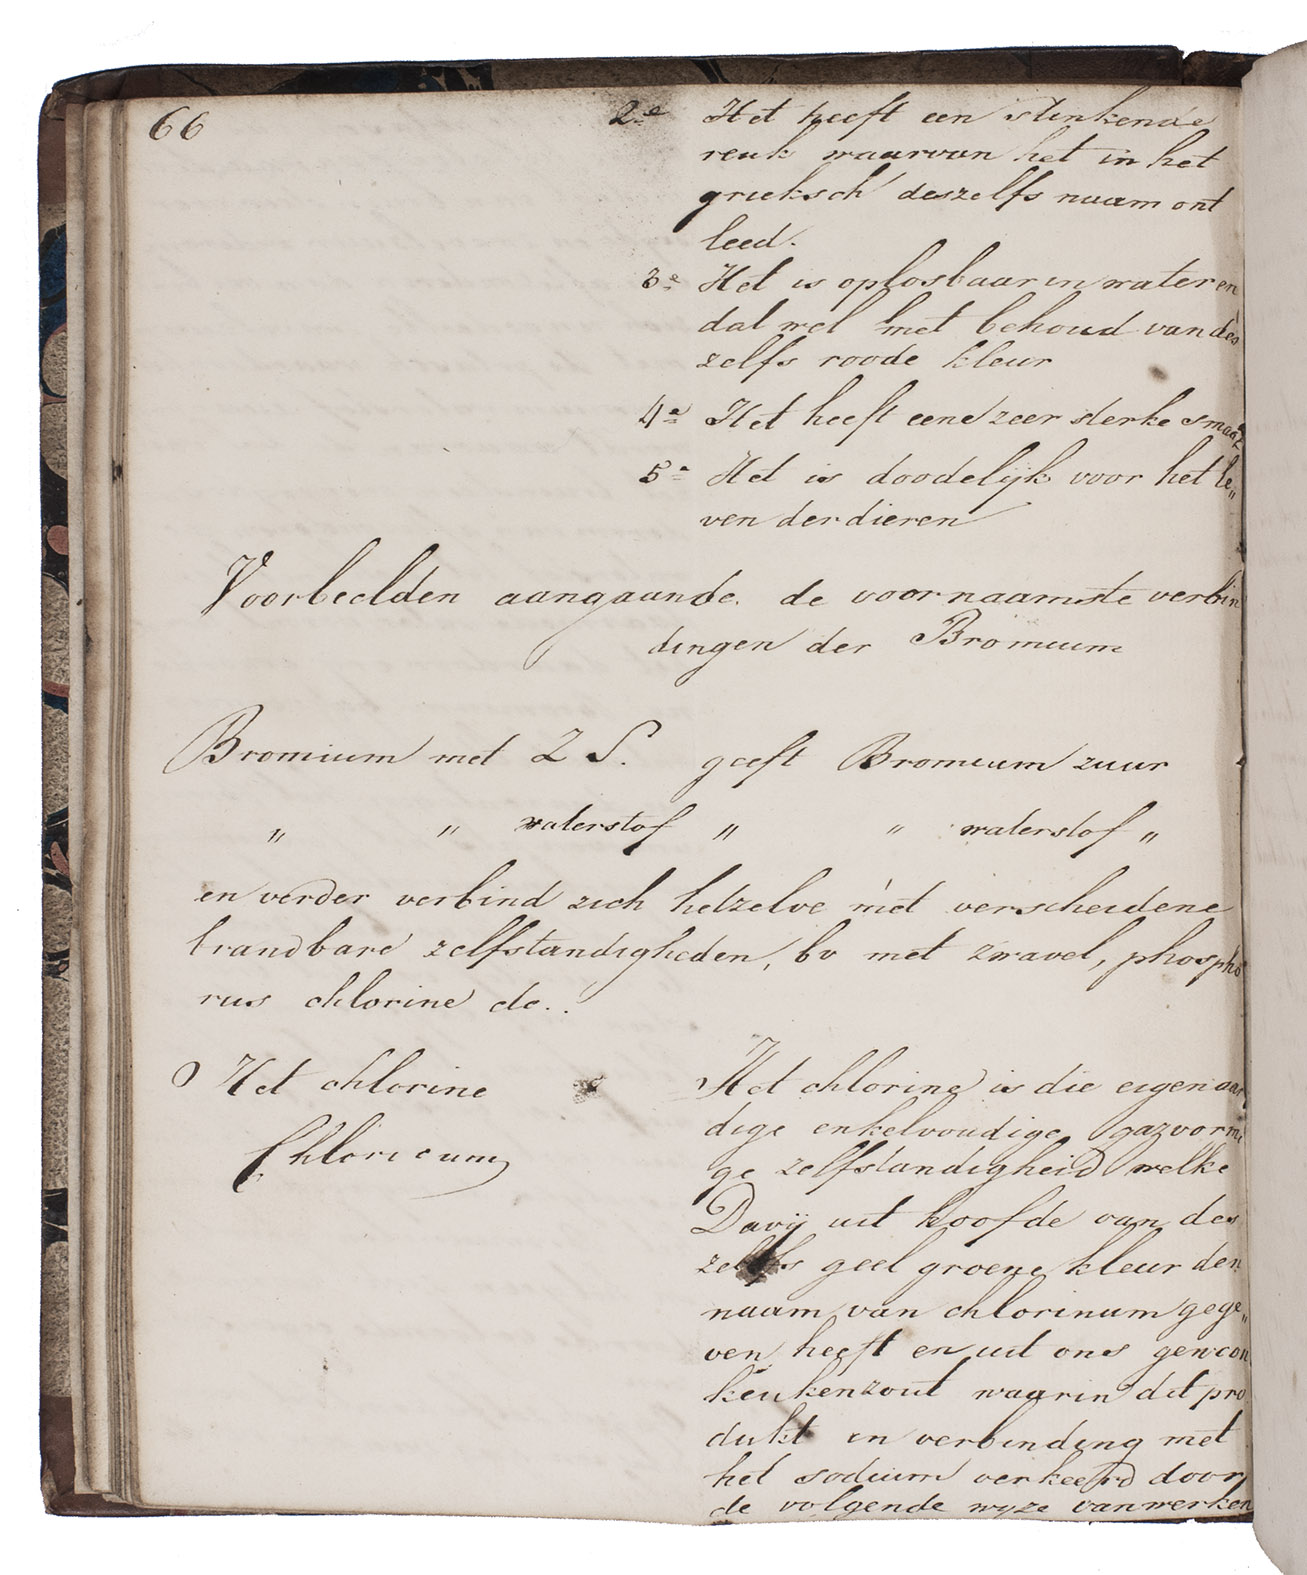 66
2e Het heeft een stinkende
reuk waarvan het in het
grieksch deszelfs naam ont
leed.
3e Het is oplosbaar in water en
dat wel met behoud van des
zelfs roode kleur
4e Het heeft eene zeer sterke smaak
5e Het is doodelijk voor het le„
ven der dieren
Voorbeelden aangaande de voornaamste verbin
dingen der Bromium
Bromium met Z S. geeft Bromium zuur
„ „ waterstof „ „ waterstof „
en verder verbind zich hetzelve met verscheidene
brandbare zelfstandigheden, bv met zwavel, phospho
rus chlorine de..
Het chlorine
Chloricum
Het chlorine is die eigenaar
dige enkelvoudige gazvormi
ge zelfstandigheid welke
Davij uit hoofde van des
zelfs geel groene kleur den
naam van chlorinum gege„
ven heeft en uit ons gewoon
keukenzout waarin dit pro
dukt in verbinding met
het sodium verkeerd door
de volgende wyze van werken